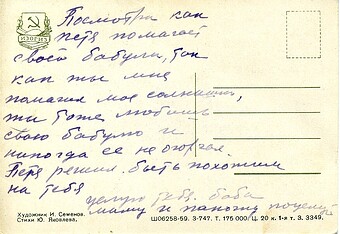 Посмотри как
петя помагает
своей бабули, так
как ты мне
помагал мое солнышко,
ты тоже любишь
свою бабулю и
никогда ее не огорчай
Петя решил быть похожим
на тебя
целую тебя. баба
маму и папочку поцелуй
ИЗОГИЗ
Художник И. Семенов.
Стихи Ю. Яковлева.
Ш06258-59. З-747. Т. 175 000. Ц. 20 к. 1-я т. З. 3349.